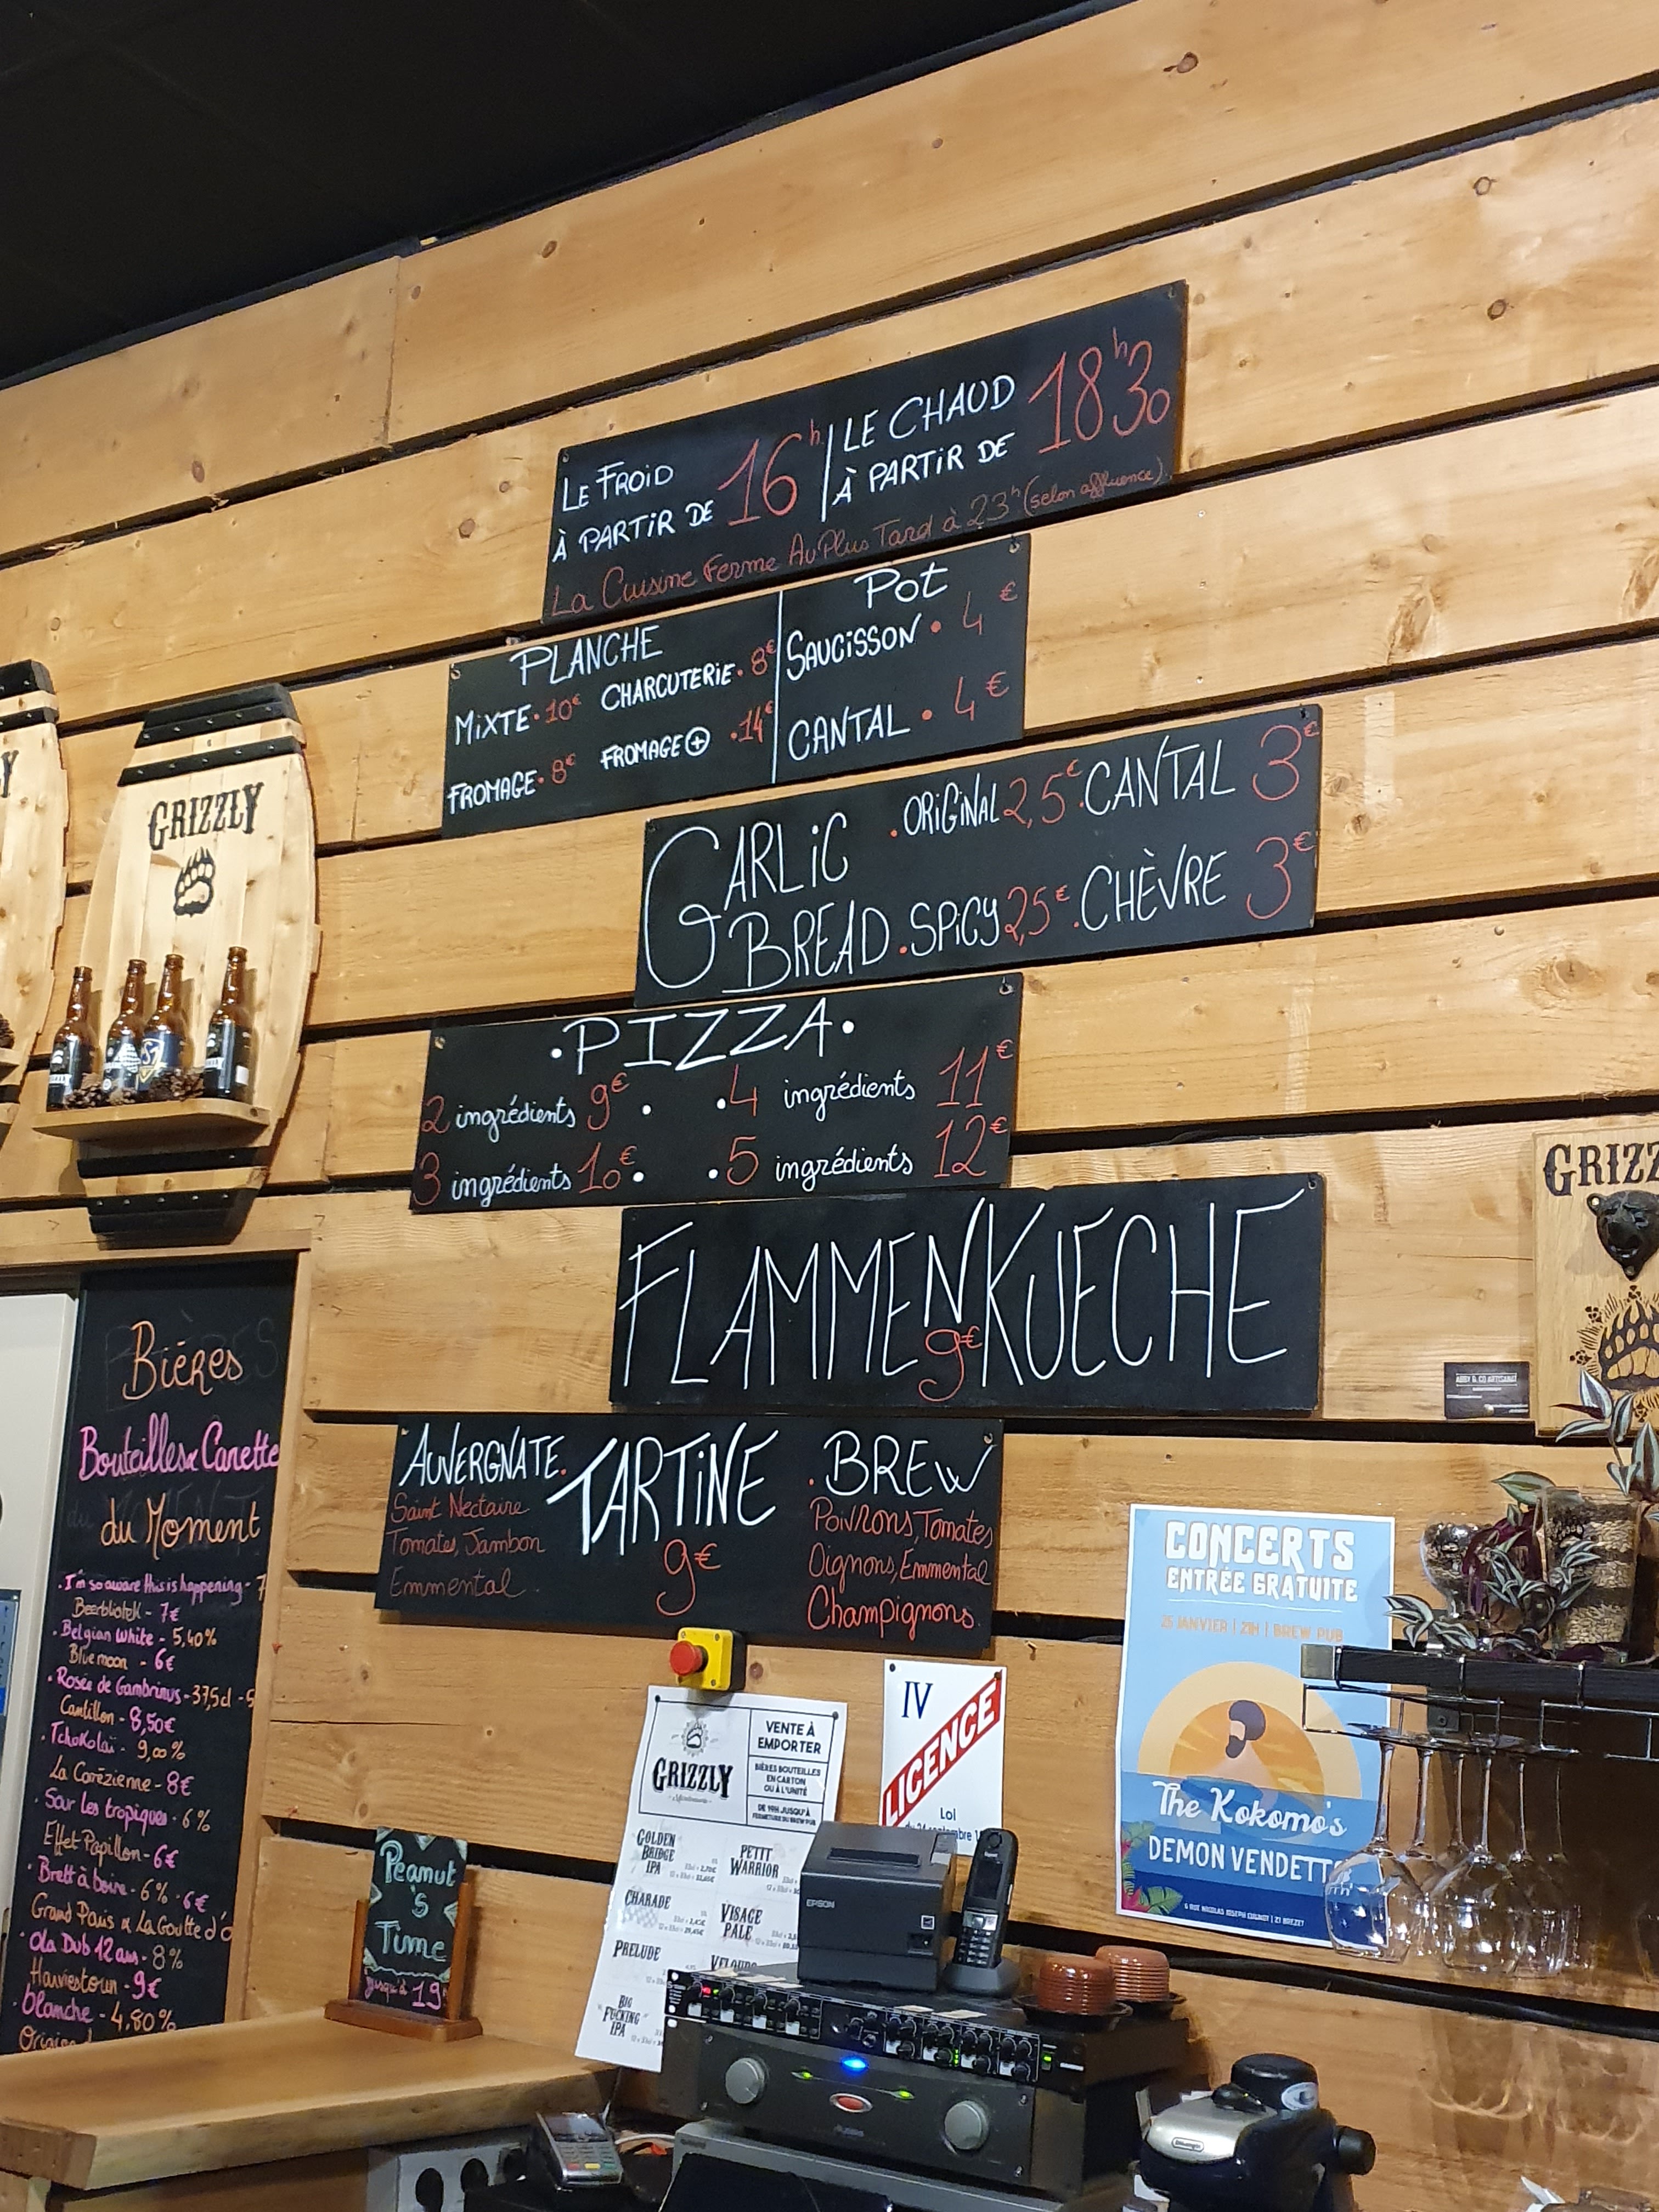 LE FROID
À PARTIR DE 16h
LE CHAUD
À PARTIR DE 18h30
La Cuisine Ferme Au Plus Tard à 23h (selon affluence)
PLANCHE
MIXTE • 10€ CHARCUTERIE • 8€
FROMAGE • 8€ FROMAGE + • 14€
POT
SAUCISSON • 4€
CANTAL • 4€
GARLIC BREAD
. ORIGINAL 2,5€ . CANTAL 3€
. SPICY 2,5€ . CHÈVRE 3€
• PIZZA •
2 ingrédients 9€ • • 4 ingrédients 11€
3 ingrédients 10€ • • 5 ingrédients 12€
FLAMMENKUECHE
9€
TARTINE
9€
AUVERGNATE.
Saint Nectaire
Tomates, Jambon
Emmental
. BREW
Poivrons, Tomates
Oignons, Emmental
Champignons
GRIZZLY
GRIZZ
Bières
Bouteilles & Canette
du Moment
. I'm so aware this is happening - 7
Beerbliotek - 7€
. Belgian White - 5,40%
Blue moon - 6€
. Rosée de Gambrinus - 37,5cl - 5
Cantillon - 8,50€
. Tchokolaï - 9,00%
La Corrézienne - 8€
. Sour les tropiques - 6%
Effet Papillon - 6€
. Brett à boire - 6% - 6€
Grand Paris & La Goutte d'o
. Ola Dub 12 ans - 8%
Harviestoun - 9€
. blanche - 4,80%
Peanut
's
Time
jusqu'à 19h
GRIZZLY
VENTE À
EMPORTER
BIÈRES BOUTEILLES
EN CARTON
OU À L'UNITÉ
DE 19H JUSQU'À
FERMETURE DU BREW PUB
GOLDEN
BRIDGE
IPA
PETIT
WARRIOR
CHARADE
VISAGE
PALE
PRELUDE
VELOURS
BIG
FUCKING
IPA
IV
LICENCE
Loi
EPSON
CONCERTS
ENTRÉE GRATUITE
25 JANVIER | 21H | BREW PUB
The Kokomo's
DEMON VENDETT
6 RUE NICOLAS JOSEPH CUGNOT | ZI BREZET
DeLonghi